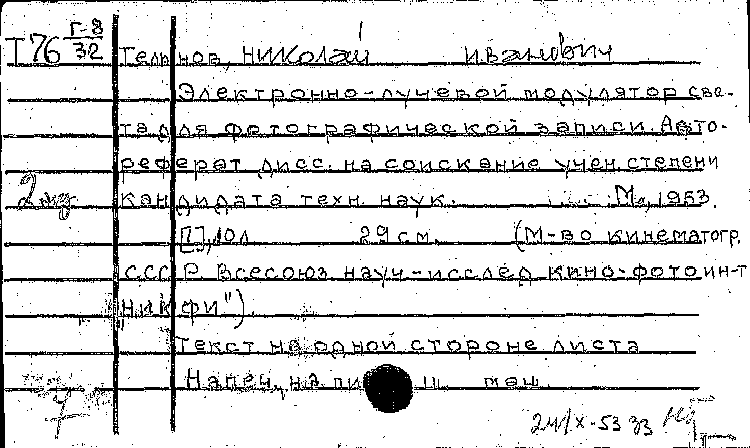 Т76 Г-8
32
Тельнов, Николай Иванович
Электронно-лучевой модулятор све-
та для фотографической записи. Авто-
реферат дисс. на соискание учен. степени
кандидата техн. наук. М., 1953.
[1], 10 л 29 см. (М-во кинематогр.
СССР. Всесоюз науч-исслед кино-фотоин-т
"НИКФИ").
Текст на одной стороне листа
Напеч. на пи маш.